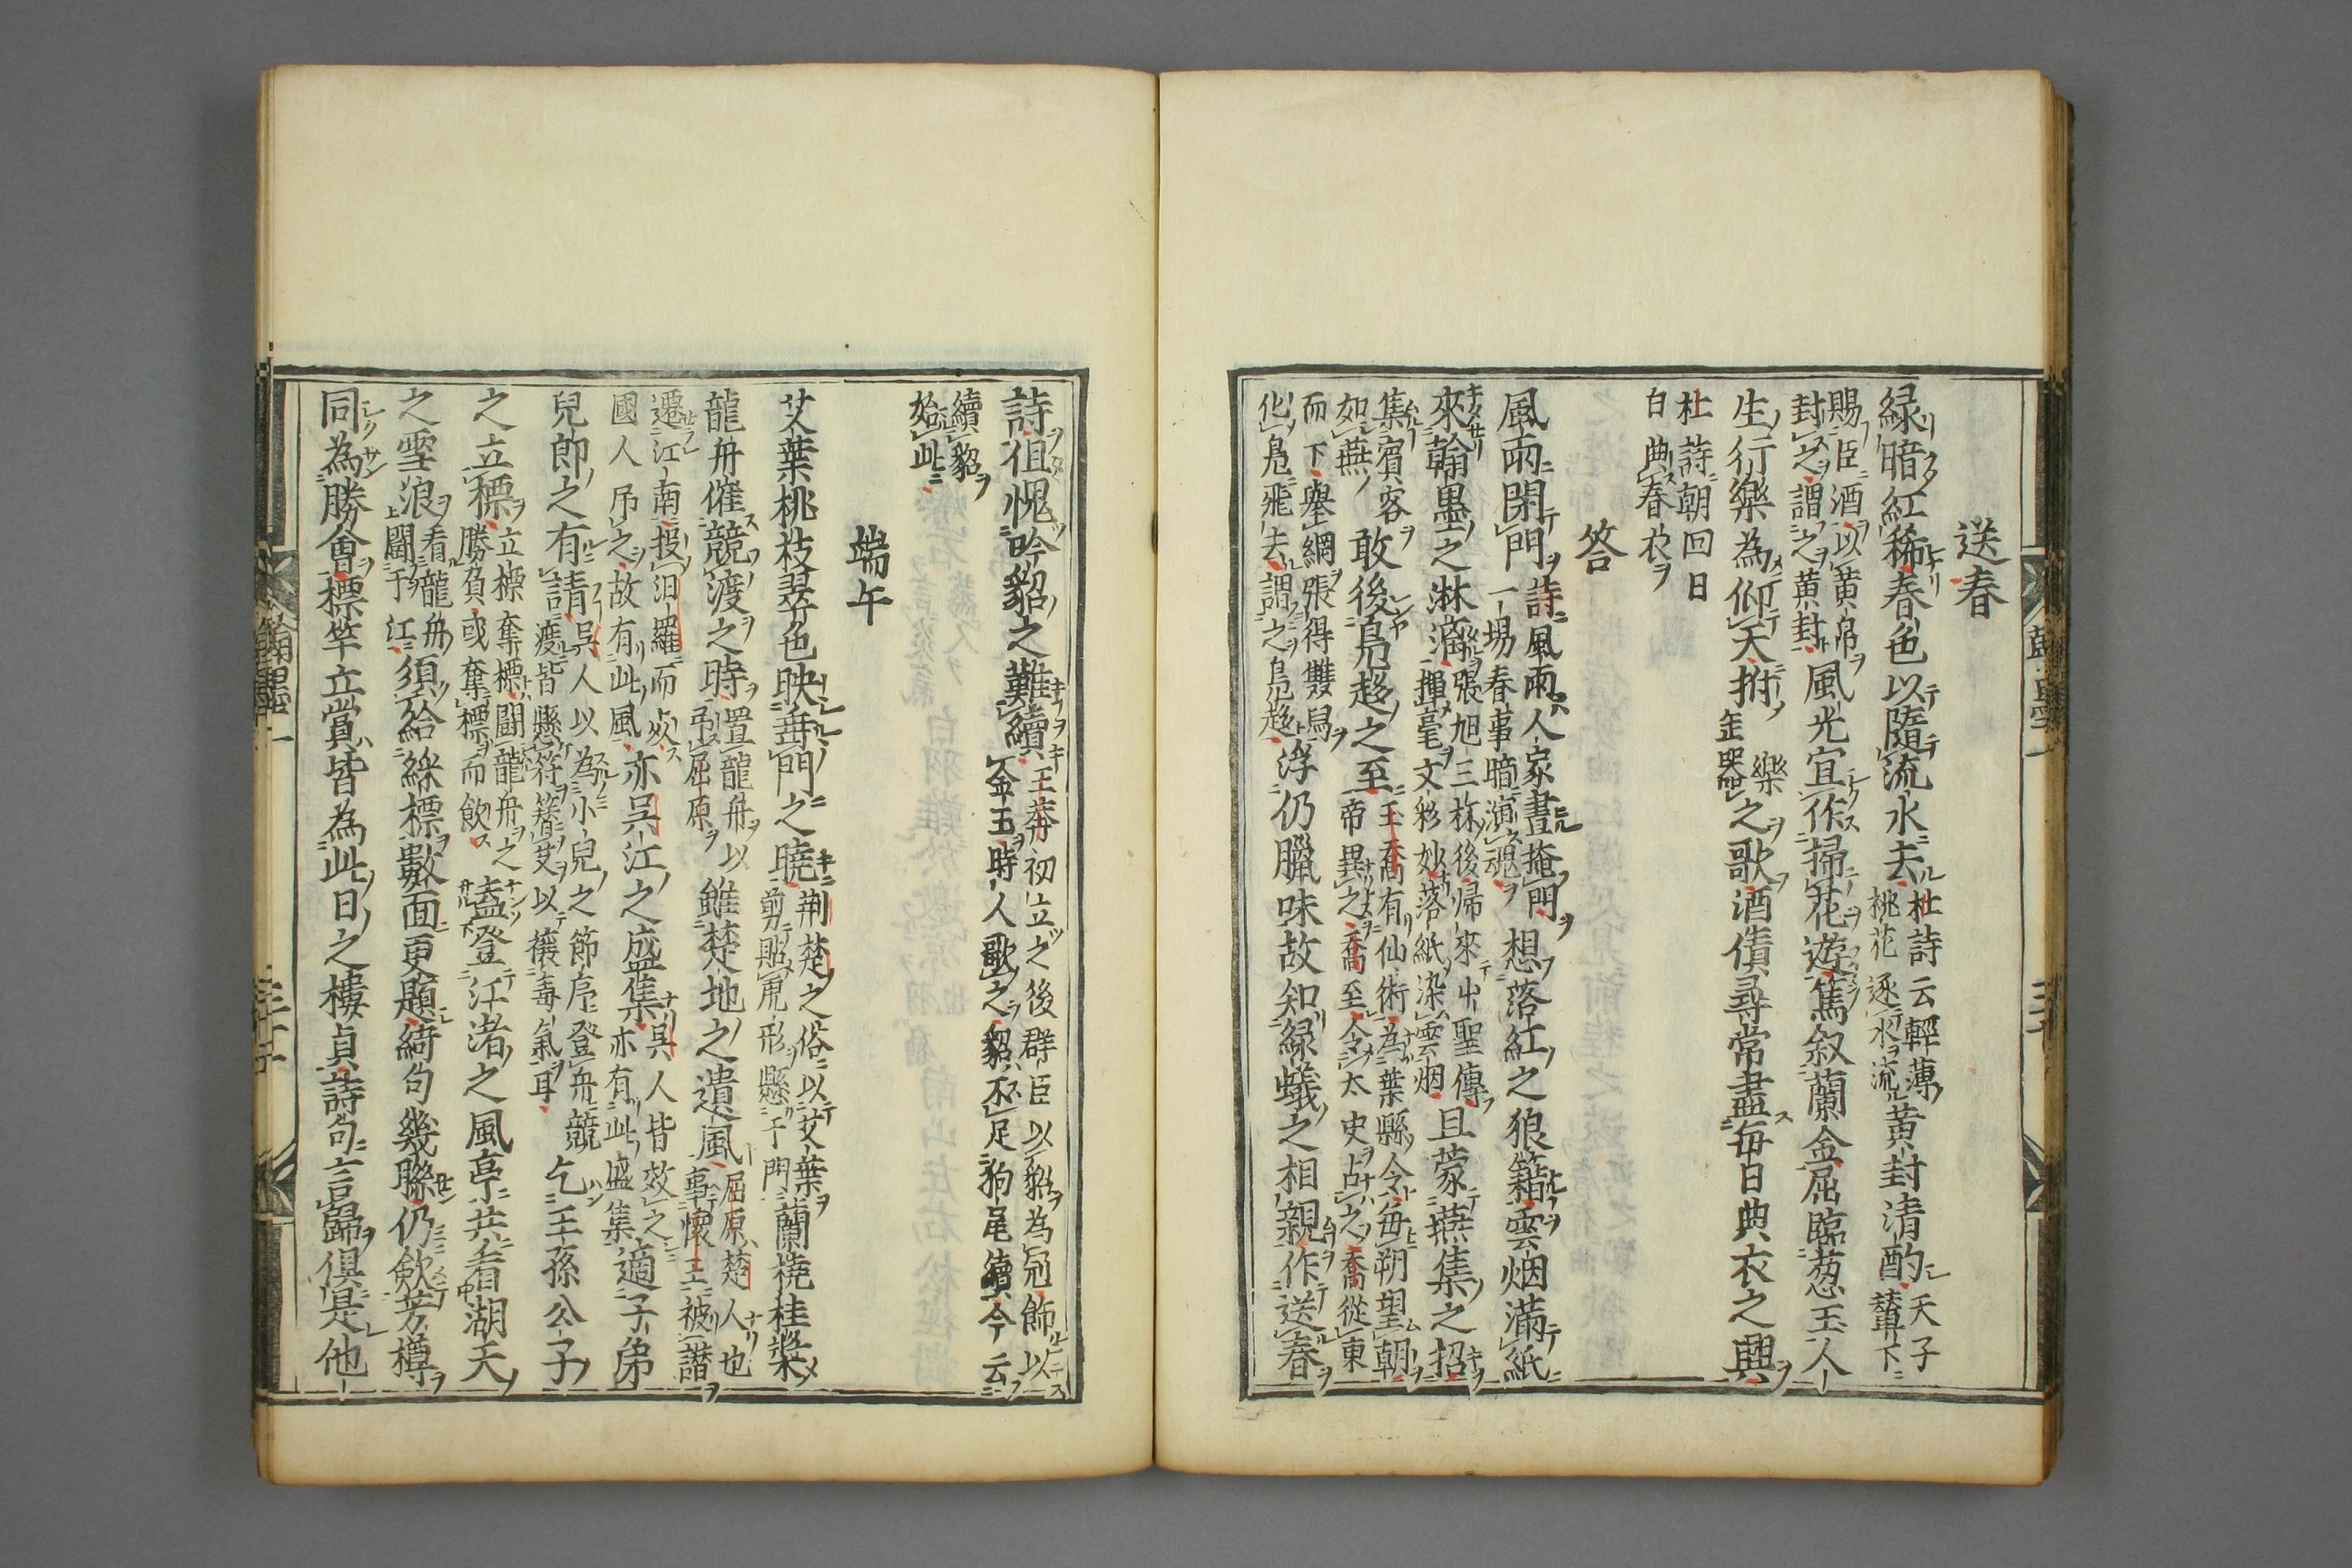 送春
緑暗紅稀春色以隨流水去杜詩云輕薄桃花逐水流黄封清酌天子輦下
賜臣酒以黄帛封之謂之黄封風光宜作掃花遊篤叙蘭金屈臨葱玉人
生行樂為仰天拊缶樂之歌酒債尋常盡每日典衣之興
杜詩朝回日日典春衣
答
風雨閉門詩風雨人家晝掩門一場春事暗演魂想落紅之狼籍雲烟滿紙
來翰墨之淋漓張旭三杯後歸來出聖傳揮毫文彩妙落紙染雲烟且蒙燕集之招
集賓客如燕敢後鳧趍之至王喬有仙術為葉縣令每朔望朝帝異之喬至令太史占之喬從東
而下擧網張得雙舄化鳧飛去謂之鳧趍浮仍臘味故知緑蟻之相親作送春
詩徂愧吟貂之難續王莽初立之後群臣以貂為冠飾以金玉時人歌之貂不足狗尾續今云
續貂始此
端午
艾葉桃枝翠色映垂門之曉荆楚之俗以艾葉剪貼虎形懸于門蘭橈桂槳
龍舟催競渡之時置龍舟以弔屈原雖楚地之遺風屈原楚人也事懷王被譖
遷江南投汨羅而死國人吊之故有此風亦吳江之盛集吳人皆效之亦有此盛集適子弟
兒節之有請吳人以為小兒之節序登舟競渡皆懸符簪艾以禳毒氣耳乞王孫公子
之立標立標奪標鬪龍舟之勝負或奪標而飲盍登江渚之風亭共看湖天
之雪浪看龍舟鬪于江須給綵標數面更題綺句幾聯仍飲芳樽
同為勝會標竿立賞皆為此日之樓貞詩句言歸俱是他